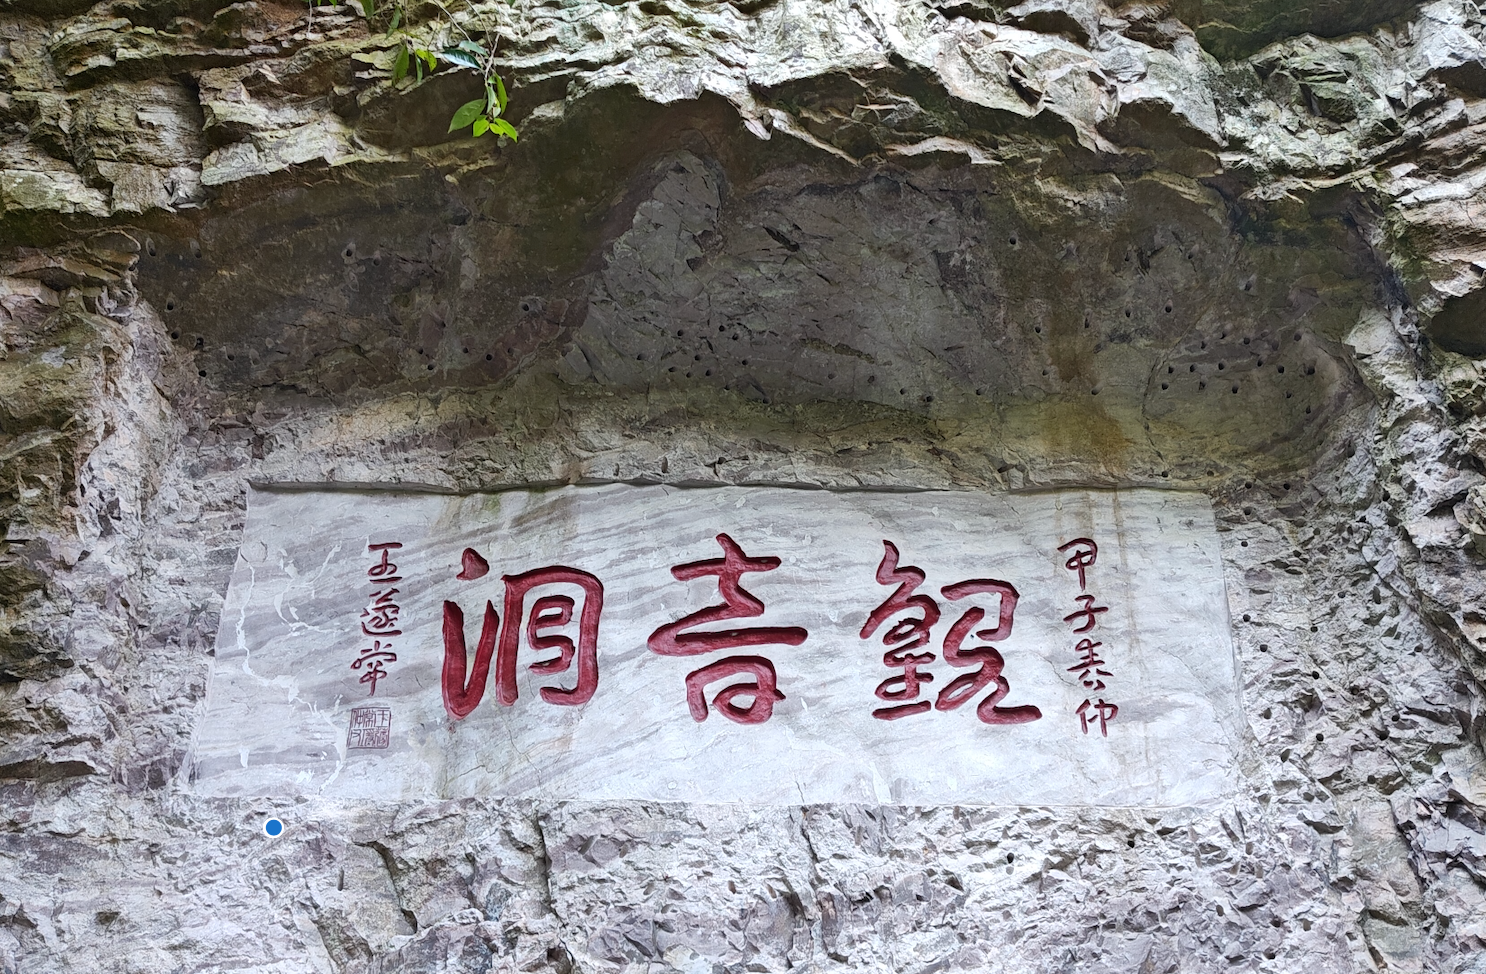 甲子春仲
觀音洞
王蘧常